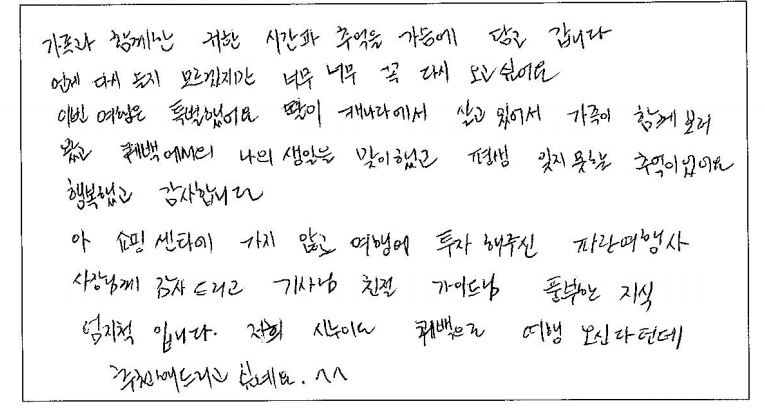 가족과 함께한 귀한 시간과 추억을 가슴에 담고 갑니다
언제 다시 올지 모르겠지만 너무 너무 꼭 다시 오고 싶어요
이번 여행은 특별했어요 딸이 캐나다에서 살고 있어서 가족이 함께 보러
왔고 퀘백에서의 나의 생일을 맞이했고 평생 잊지 못할 추억이었어요
행복했고 감사합니다
아 쇼핑센타에 가지 않고 여행에 투자해주신 파란여행사
사장님께 감사드리고 기사님 친절 가이드님 풍부한 지식
엄지척 입니다. 저희 시누이도 퀘백으로 여행 오신다던데
추천해드리고 싶네요. ^^